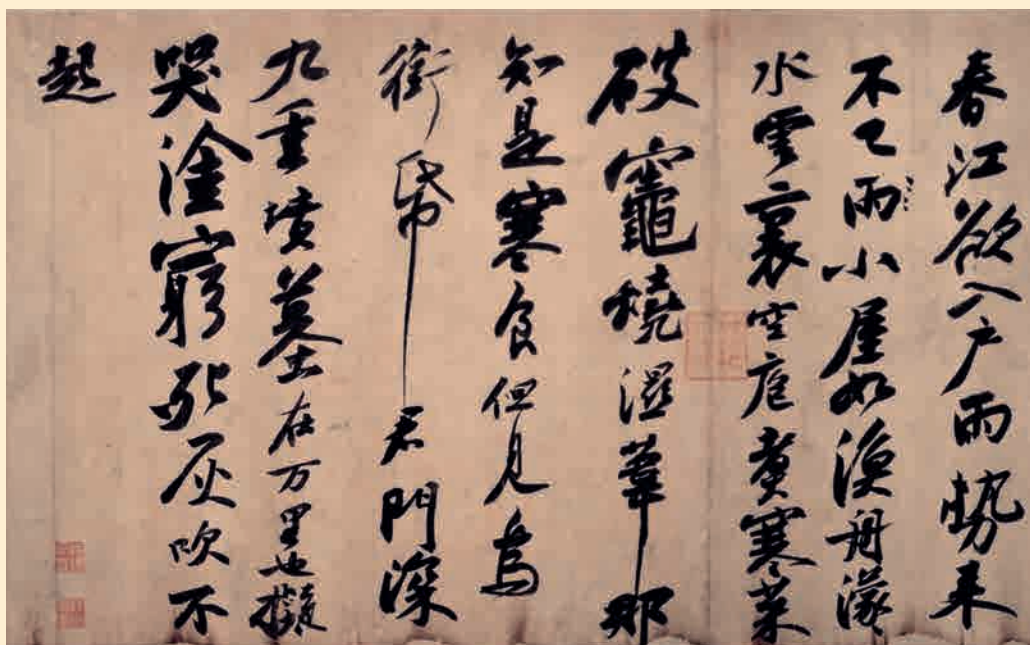 春江欲入戶雨勢来
不已雨小屋如漁舟濛々
水雲裏空庖煮寒菜
破竈燒濕葦那
知是寒食但見烏
銜帋君門深
九重墳墓在万里也擬
哭塗窮死灰吹不
起